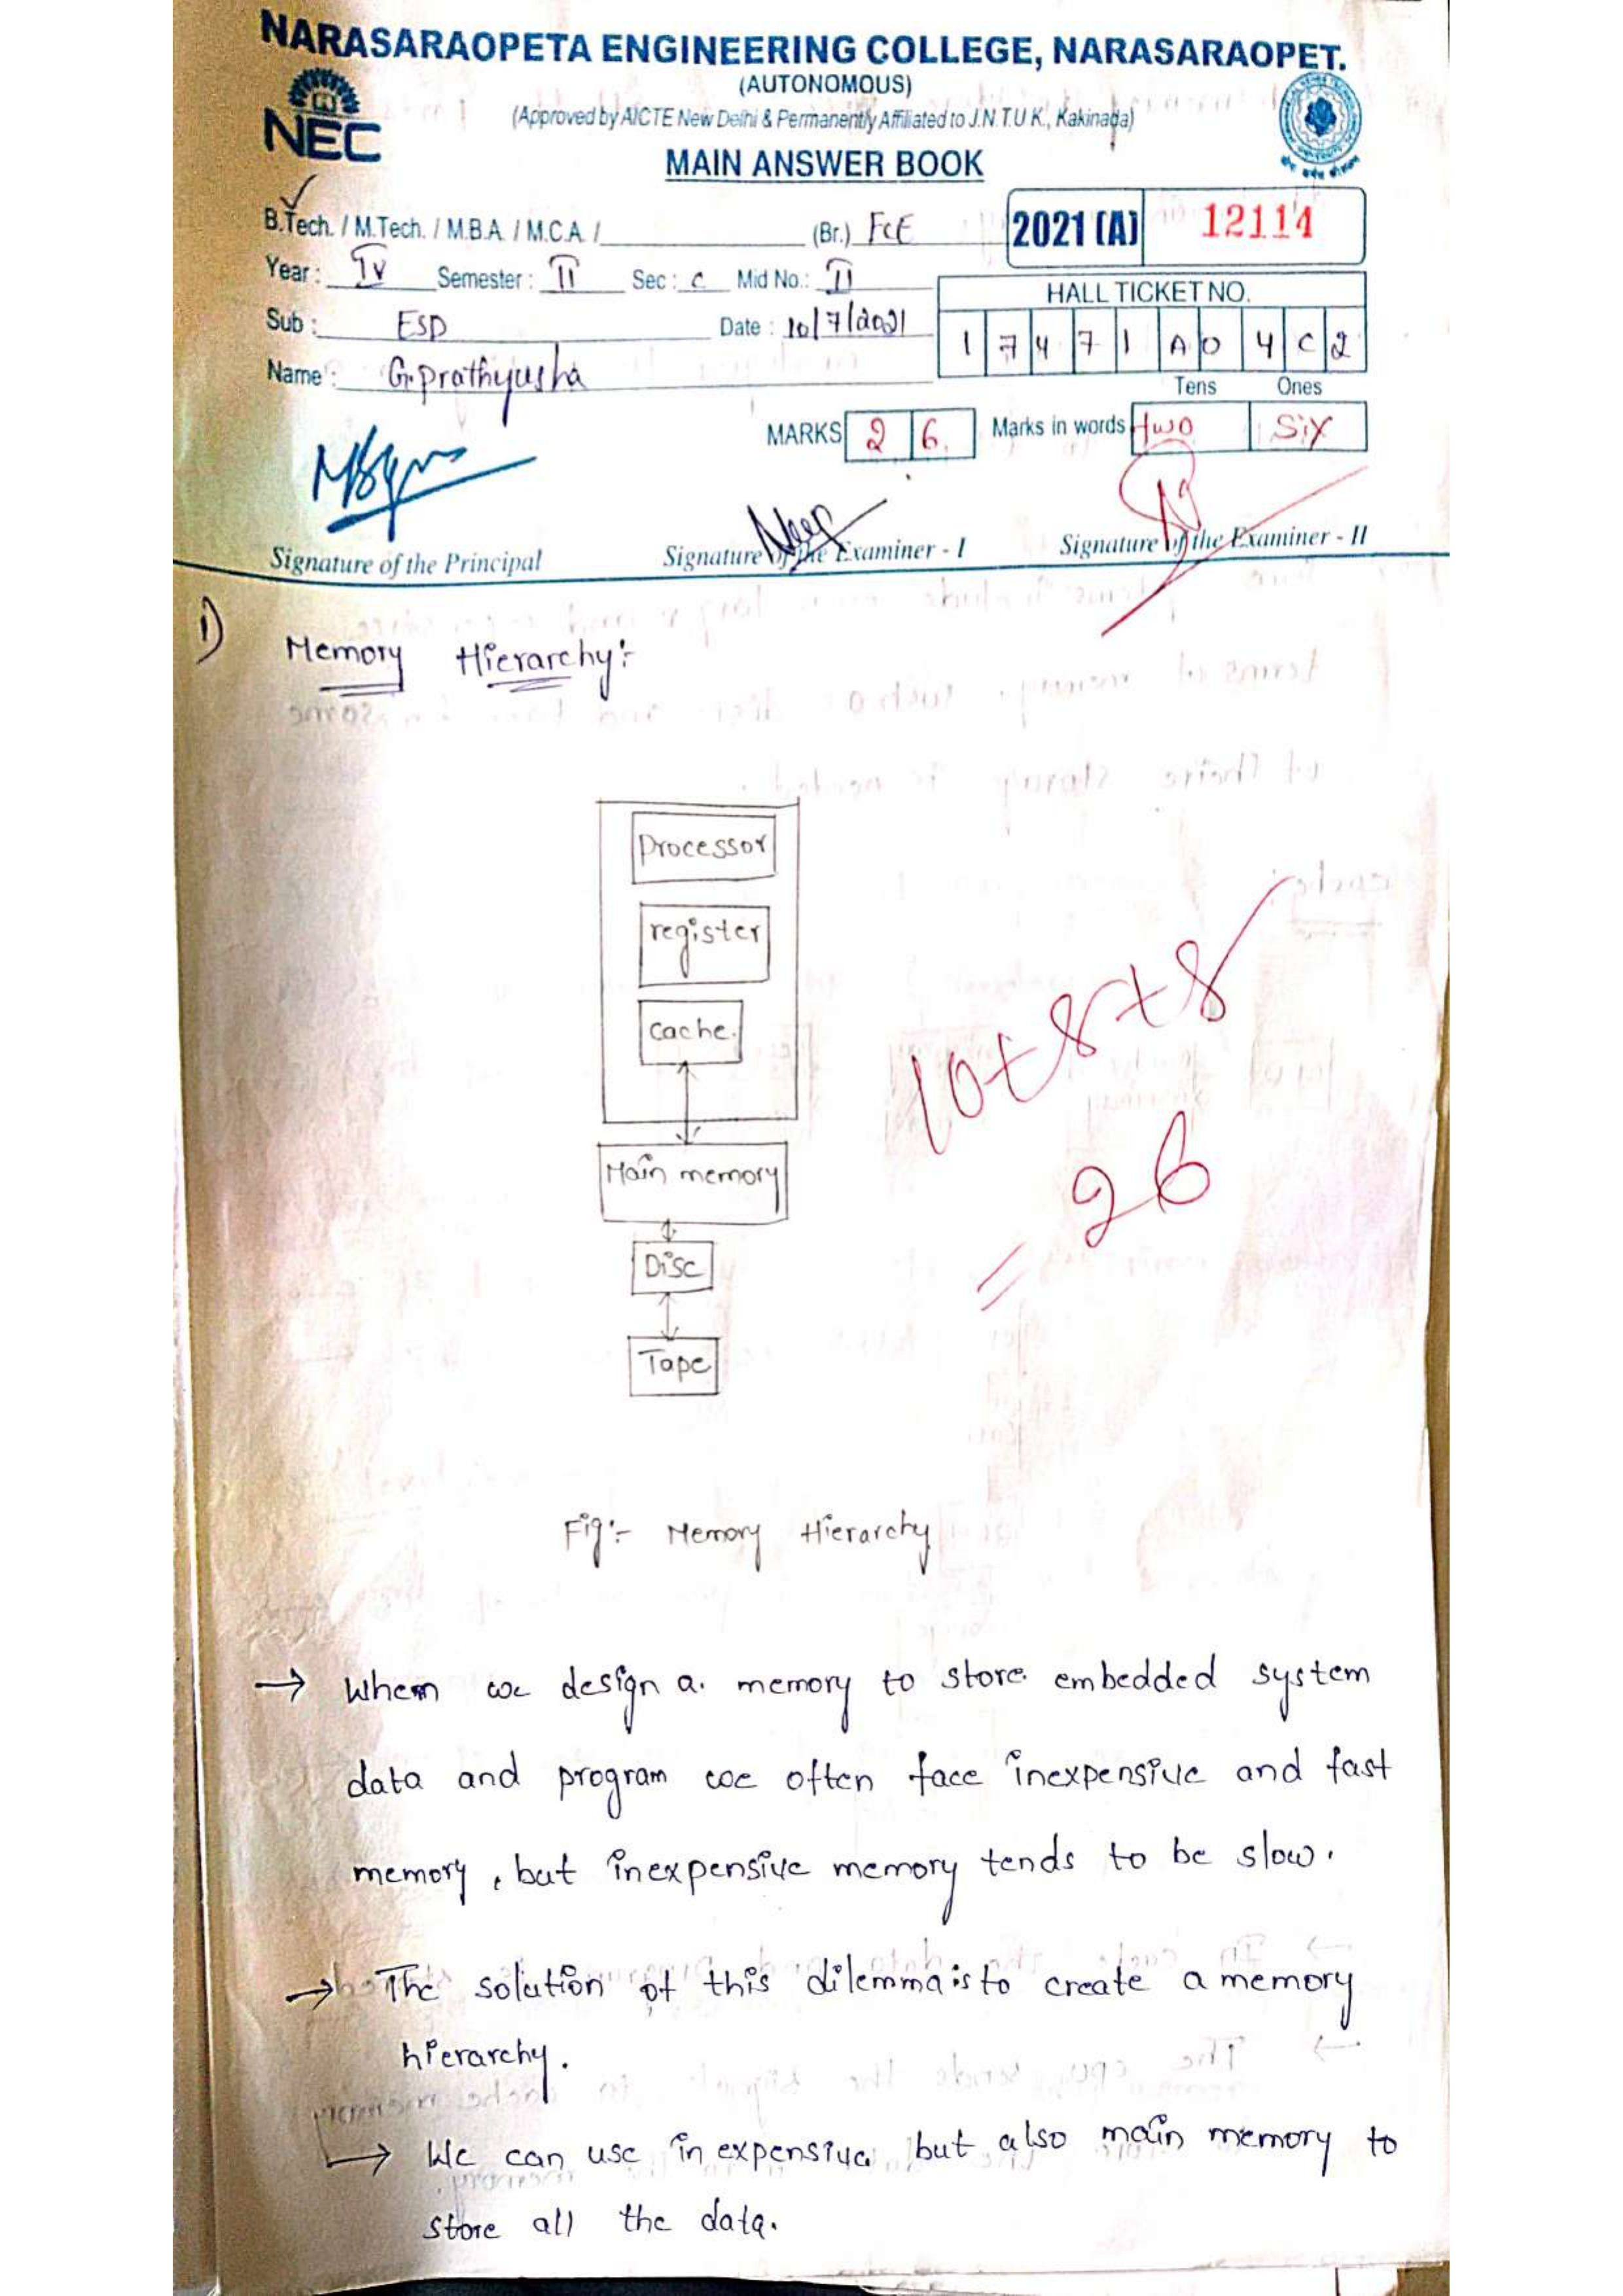 NARASARAOPETA ENGINEERING COLLEGE, NARASARAOPET.
(AUTONOMOUS)
(Approved by AICTE New Delhi & Permanently Affiliated to J.N.T.U.K., Kakinada)
NEC
MAIN ANSWER BOOK
B.Tech. / M.Tech. / M.B.A. / M.C.A. / (Br.) ECE
2021 (A) 12114
Year: IV Semester: II Sec: C Mid No.: II
HALL TICKET NO.
Sub: ESD Date: 10/7/2021
1 7 4 7 1 A 0 4 C 2
Name: G.prathyusha
Tens Ones
MARKS 2 6. Marks in words two Six
Signature of the Principal
Signature of the Examiner - I
Signature of the Examiner - II
1) Memory Hierarchy:-
processor
register
cache.
10+8+8
= 26
Main memory
Disc
Tape
Fig:- Memory Hierarchy
→ When we design a memory to store embedded system
data and program we often face inexpensive and fast
memory, but inexpensive memory tends to be slow.
→ The solution of this dilemma is to create a memory
hierarchy.
→ We can use inexpensive but also main memory to
store all the data.